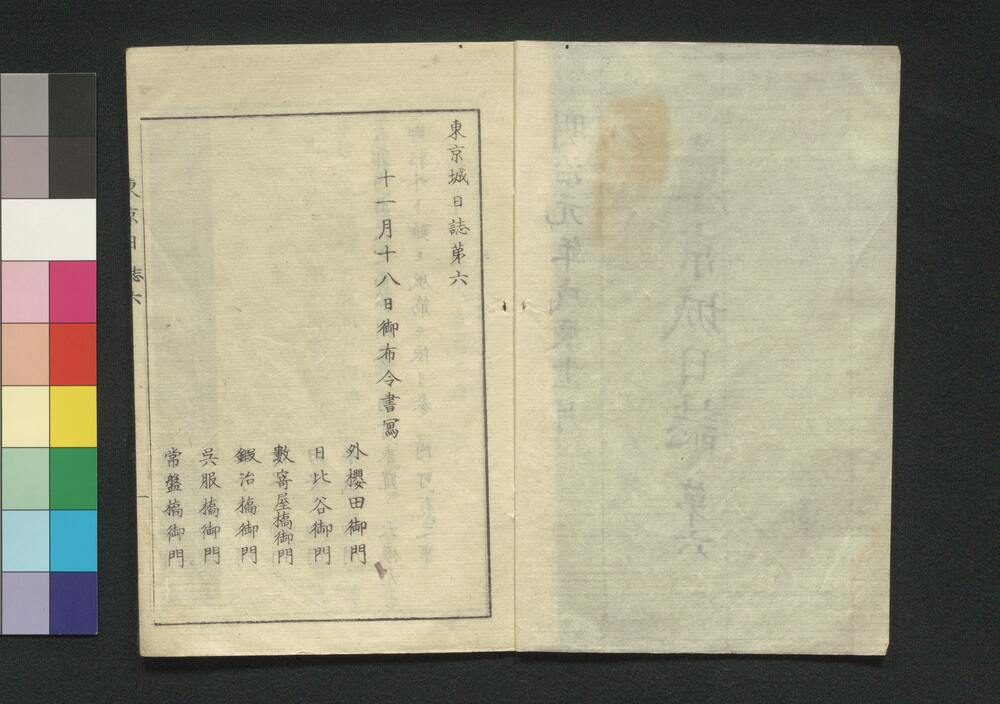 東京城日誌第六
十一月十八日御布令書冩
外櫻田御門
日比谷御門
數寄屋橋御門
鍜冶橋御門
呉服橋御門
常盤橋御門
東京日誌六
一